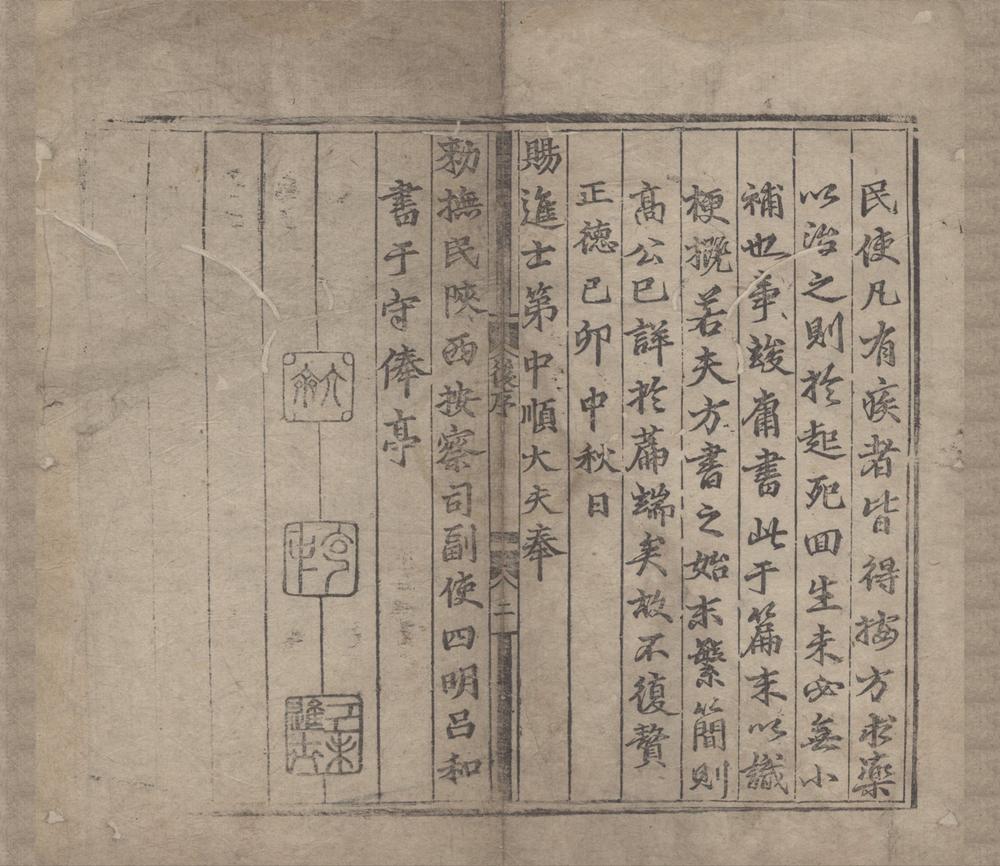 民使凡有疾者皆得按方求藥
以治之則於起死回生未必無小
補也事竣庸書此于篇末以識
梗槩若夫方書之始末繁簡則
高公已詳於篇端矣故不復贅
正德己卯中秋日
賜進士第中順大夫奉
後序
二
勑撫民陝西按察司副使四明呂和
書于守俸亭